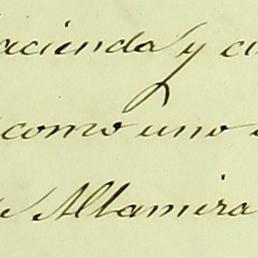 acienda y c
como uno
de Altamira